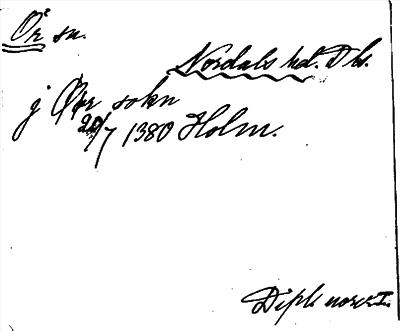 Ör sn.
Nordals hd. Dls.
j Ør sokn
20/7 1380 Holm.
Dipl. norv. I.